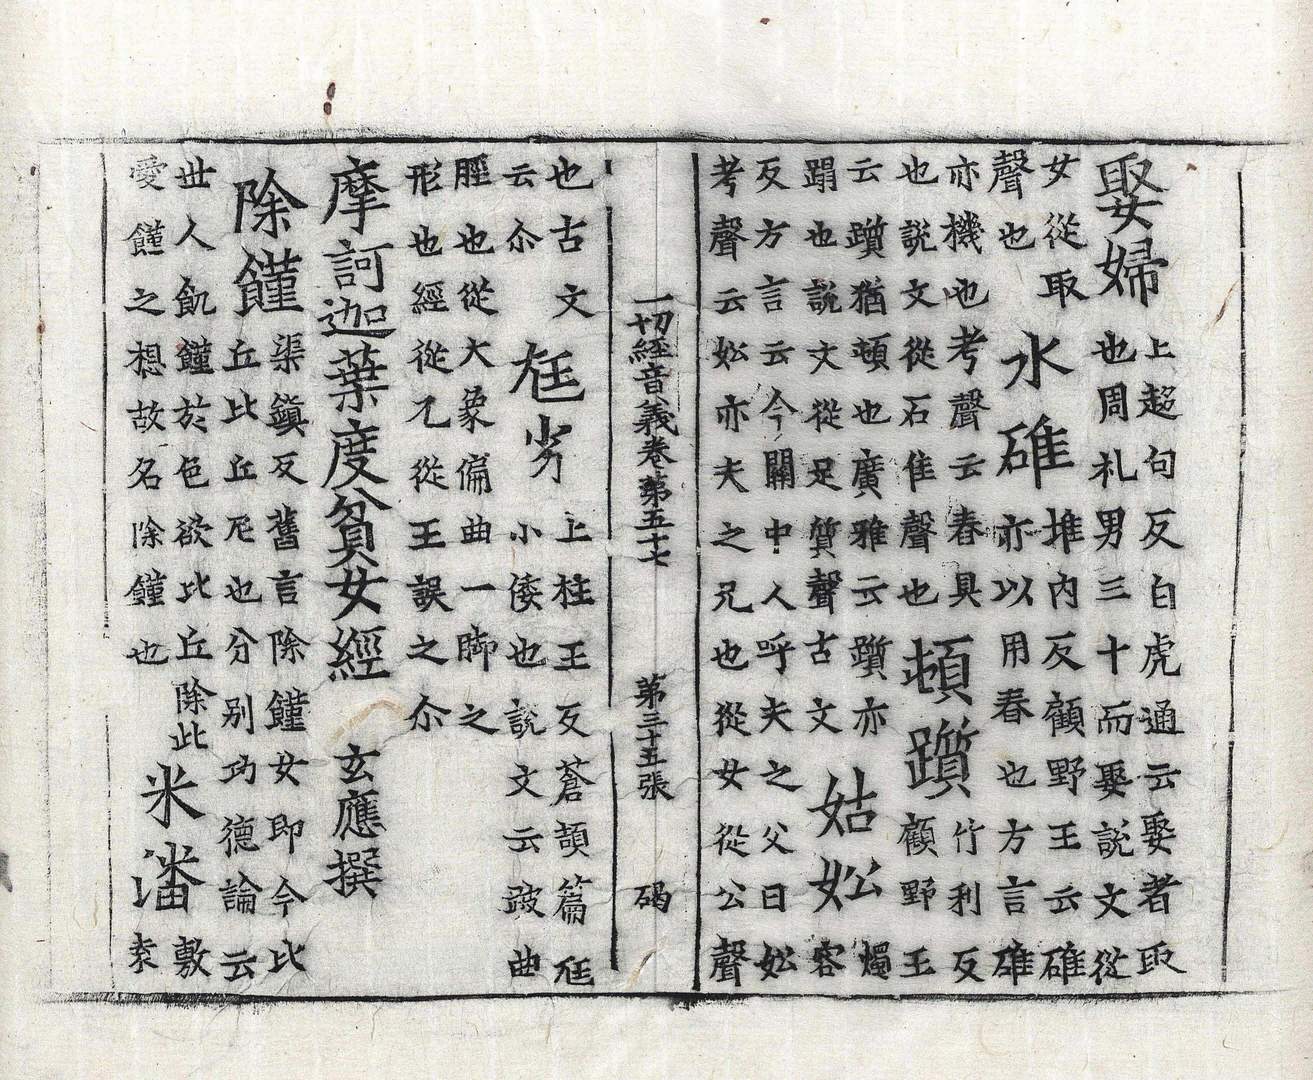 娶婦
上趍句反白虎通云娶者取
也周礼男三十而娶說文從
女從取
聲也
水碓
堆內反顧野王云碓
亦以用舂也方言碓
亦機也考聲云舂具
也說文從石隹聲也
頓躓
竹利反
顧野王
云躓猶頓也廣雅云躓亦
蹋也說文從足質聲古文
姑妐
燭
容
反方言云今關中人呼夫之父曰妐
考聲云妐亦夫之兄也從女從公聲
一切經音義卷第五十七 第三十五張 碣
也古文
云尒
尪劣
上枉王反蒼頡篇尪
小倭也說文云跛曲
脛也從大象偏曲一脚之
形也經從兀從王誤之尒
摩訶迦葉度貧女經 玄應撰
除饉
渠鎮反舊言除饉女即今比
丘比丘尼也分別功德論云
世人飢饉於色欲比丘除此
愛饉之想故名除饉也
米潘
敷
袁